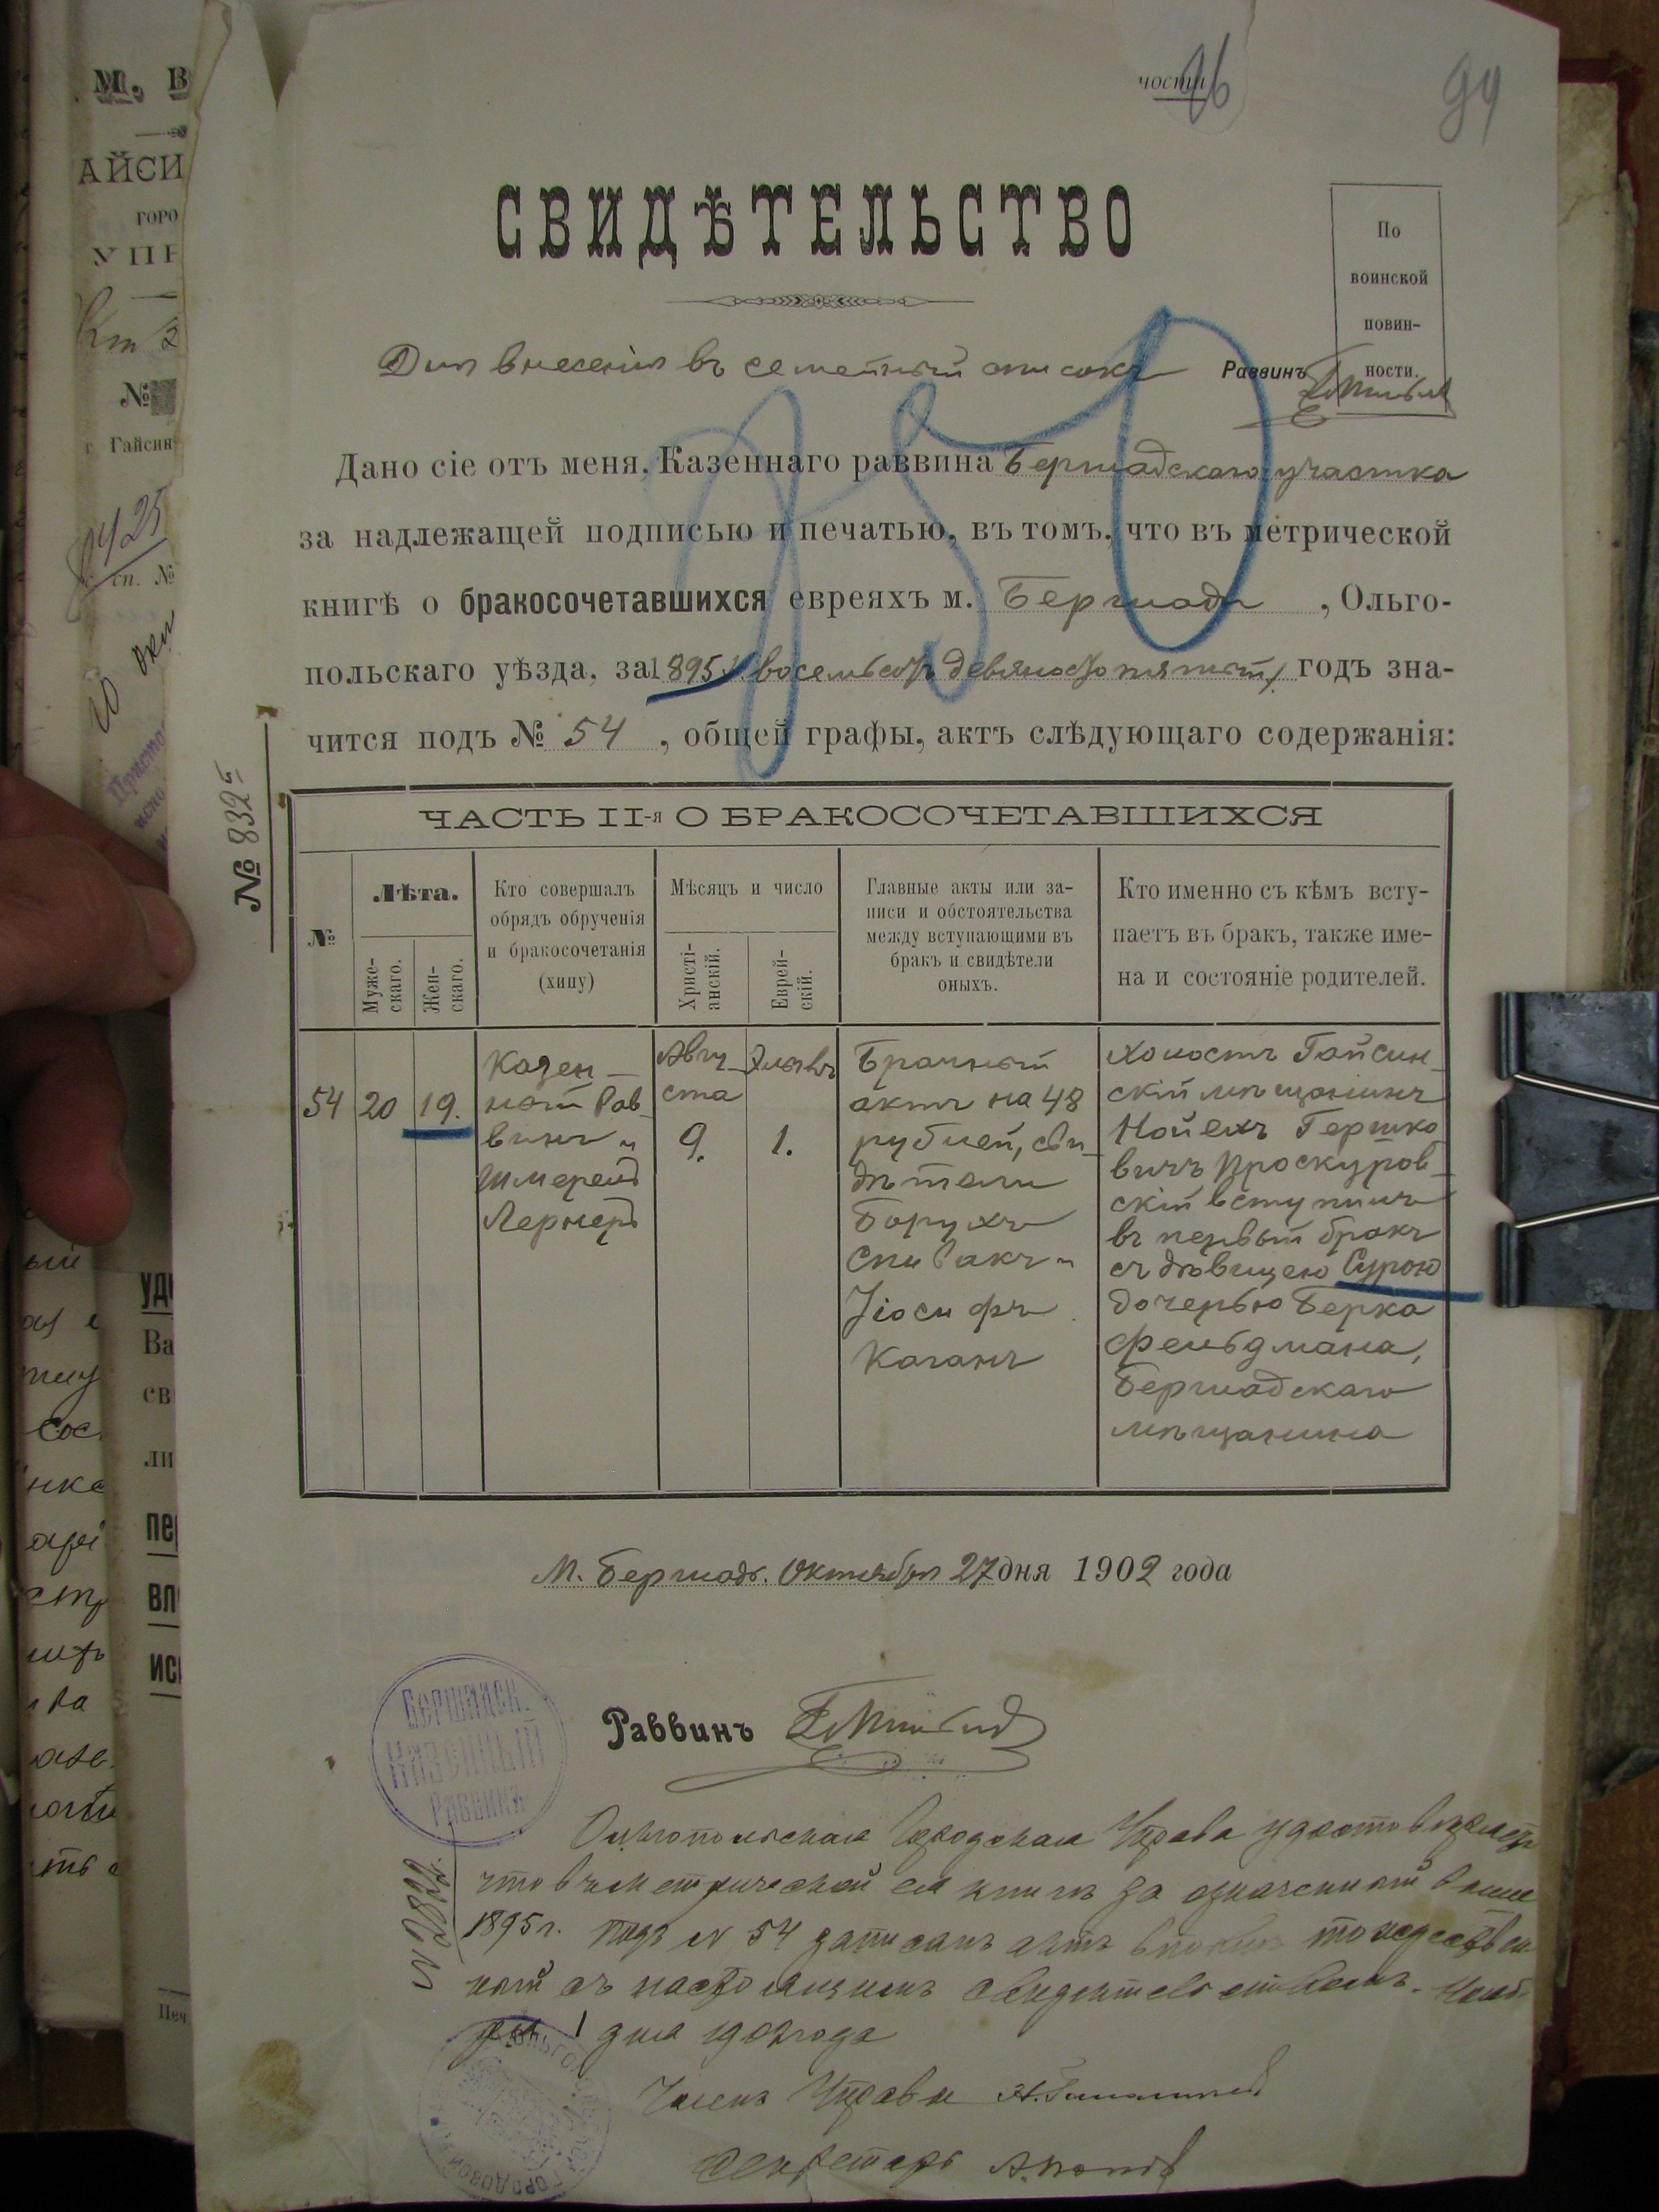 части
96
94
СВИДѢТЕЛЬСТВО
По
воинской
повин-
ности.
Для внесенія въ семейный списокъ Раввинъ
Дано сіе отъ меня, Казеннаго раввина Бершадскаго участка
за надлежащей подписью и печатью, въ томъ, что въ метрической
книгѣ о бракосочетавшихся евреяхъ м. Бершади, Ольго-
польскаго уѣзда, за 1895 (восемьсотъ девяносто пятый) годъ зна-
чится подъ № 54, общей графы, актъ слѣдующаго содержанія:
№ 8325
ЧАСТЬ II-я О БРАКОСОЧЕТАВШИХСЯ
№
Лѣта.
Муже-
скаго.
Жен-
скаго.
Кто совершалъ
обрядъ обрученія
и бракосочетанія
(хипу)
Мѣсяцъ и число
Христі-
анскій.
Еврей-
скій.
Главные акты или за-
писи и обстоятельства
между вступающими въ
бракъ и свидѣтели
оныхъ.
Кто именно съ кѣмъ всту-
паетъ въ бракъ, также име-
на и состояніе родителей.
54
20
19.
Казен-
ный Рав-
винъ и
Шмерель
Лернеръ
Авгу-
ста
9.
Элывъ
1.
Брачный
актъ на 48
рублей, сви-
дѣтели
Борухъ
Спивакъ и
Іосифъ
Каганъ
Холостъ Гайсин-
скій мѣщанинъ
Нойехъ Гершко-
вичъ Проскуров-
скій вступилъ
въ первый бракъ
съ дѣвицею Сурою
дочерью Берка
Фельдмана,
Бершадскаго
мѣщанина
М. Бершадь. Октября 27 дня 1902 года
БЕРШАДСК.
КАЗЕННЫЙ
РАВВИНЪ
Раввинъ
Ольгопольская Городская Управа удостовѣряетъ
что въ метрической ея книгѣ за означенный выше
1895 г. подъ № 54 записанъ актъ вполнѣ тождествен-
ный съ настоящимъ свидѣтельствомъ. Нояб-
ря 1 дня 1902 года
№ 2822.
Членъ Управы
Секретарь А. Попов
М. В
АЙСИ
ГОРО
УПР
№
г. Гайсин
сп. №
УД
Ва
св
ли
пе
вл
ис
Печ